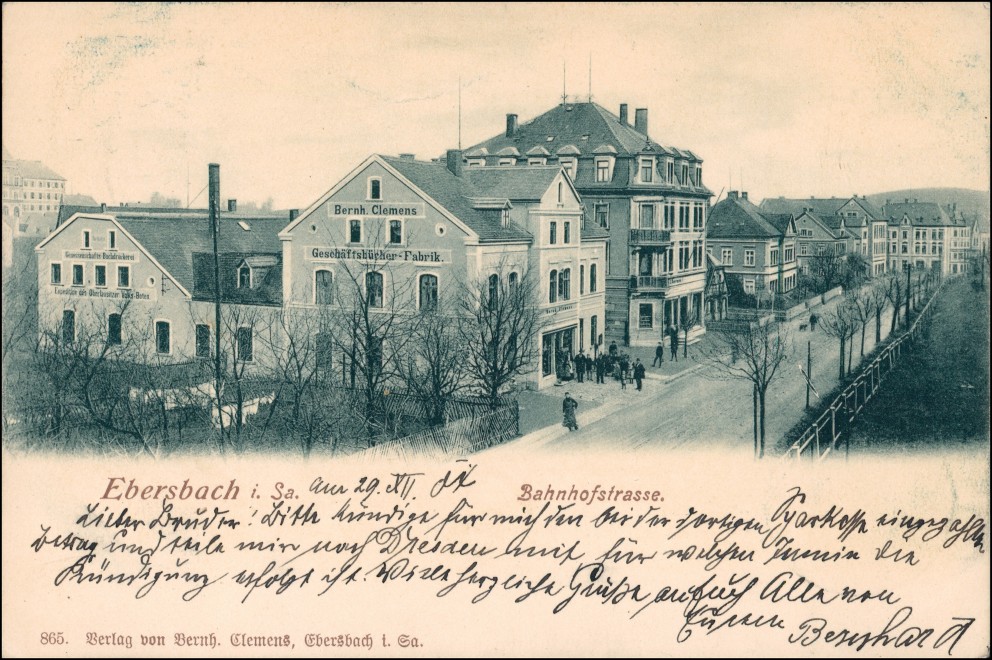 Bernh. Clemens
Geschäftsbücher-Fabrik.
Genossenschafts-Buchdruckerei
Expedition des Oberlausitzer Volks-Boten
Ebersbach i. Sa. Am 29. XII.
Bahnhofstrasse.
Lieber Bruder! Bitte kündige für mich den bei der dortigen Sparkasse eingezahlten
Betrag und teile mir nach Dresden mit für welchen Termin die
Kündigung erfolgt ist. Viele herzliche Grüße an Euch Alle von
Eurem Bernhard
865. Verlag von Bernh. Clemens, Ebersbach i. Sa.